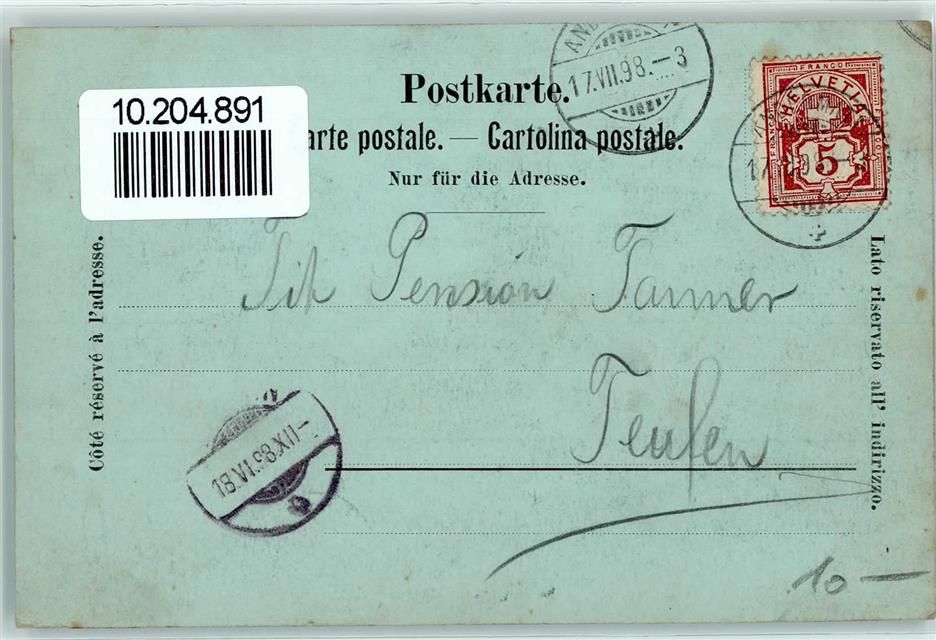 10.204.891
Postkarte.
arte postale. — Cartolina postale.
Nur für die Adresse.
17.VII.98.–3
FRANCO
HELVETIA
5
Côté réservé à l'adresse.
Lato riservato all' indirizzo.
Tit Pension Tanner
Teufen
18.VII.98.XII–
10 —